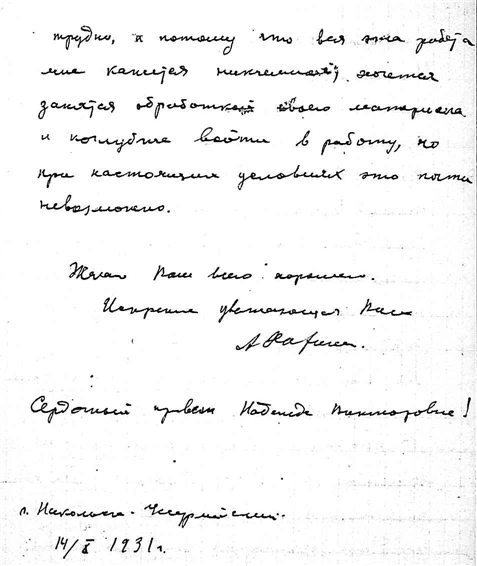 трудно, а потому что вся эта работа
мне кажется никчемной; хочется
занятся обработкой своего материала
и поглубже войти в работу, но
при настоящих условиях это почти
невозможно.
Желаю Вам всего хорошего.
Искренне уважающая Вас
А.
Сердечный привет Надежде Викторовне!
г. Никольск-Уссурийский.
14/X 1931 г.